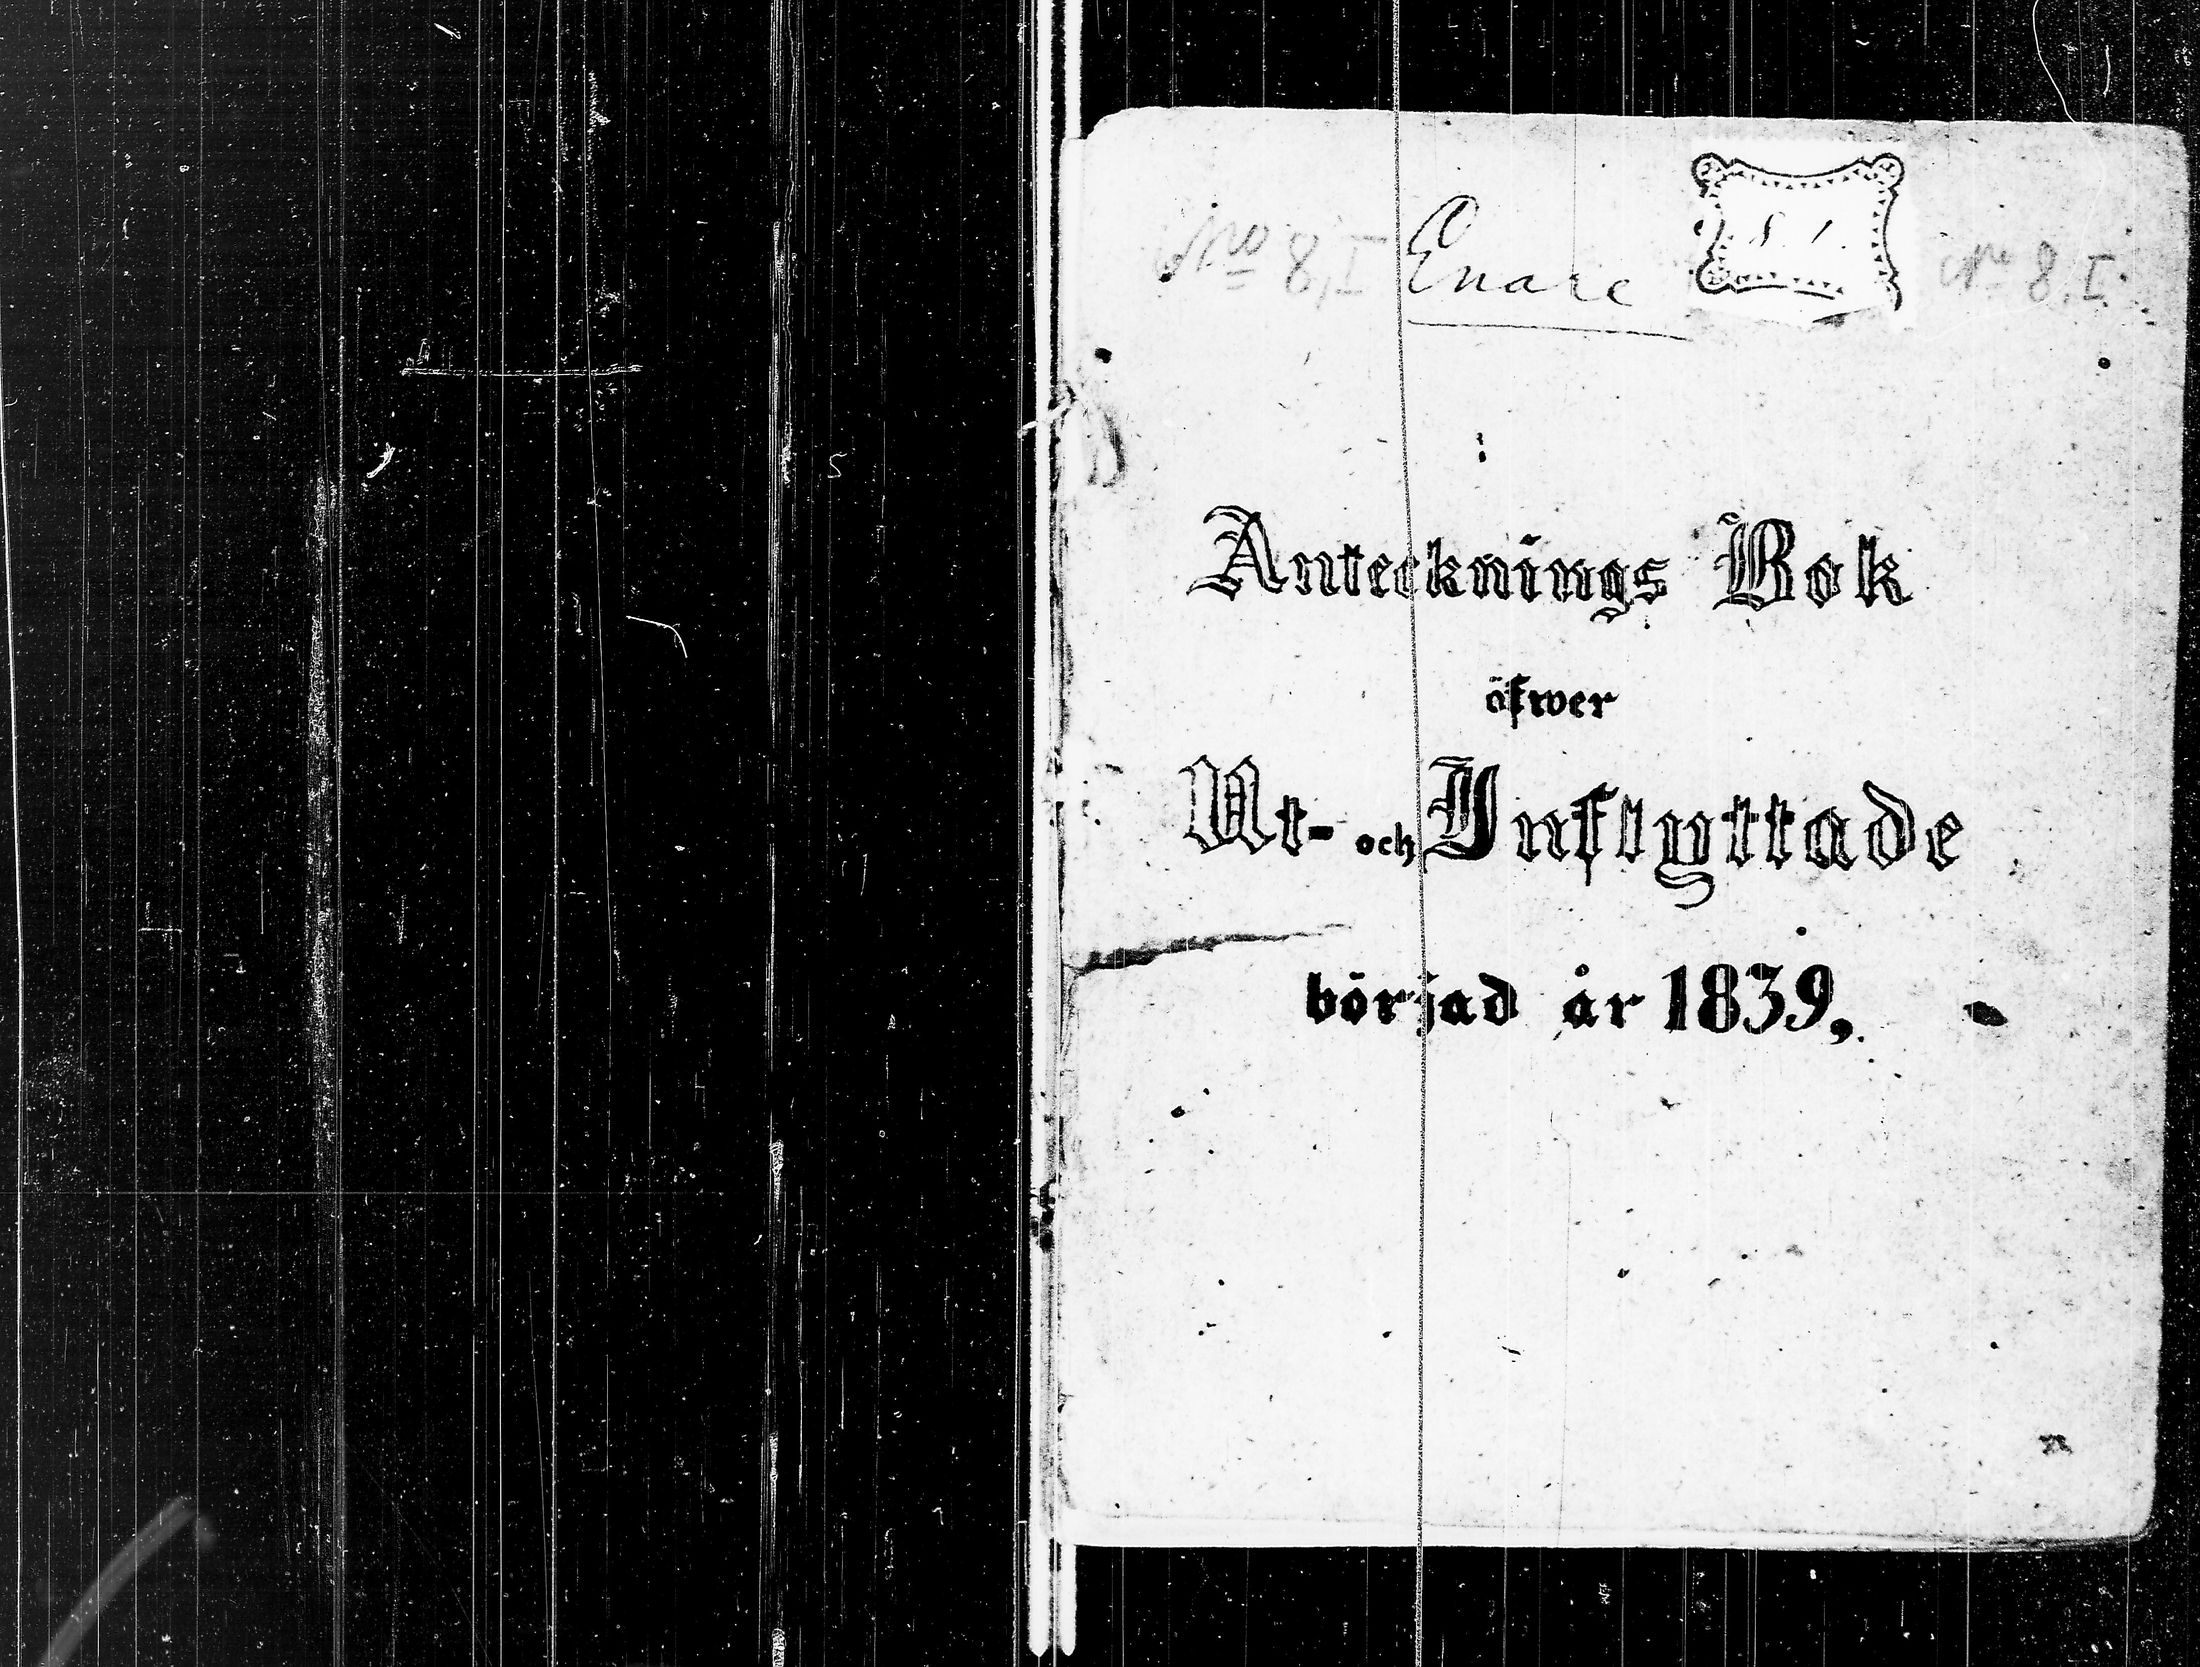 No 8, I Enare 8. 1. No 8, I.
Antecknings Bok
öfwer
Ut- och Inflyttade
börjad år 1839,